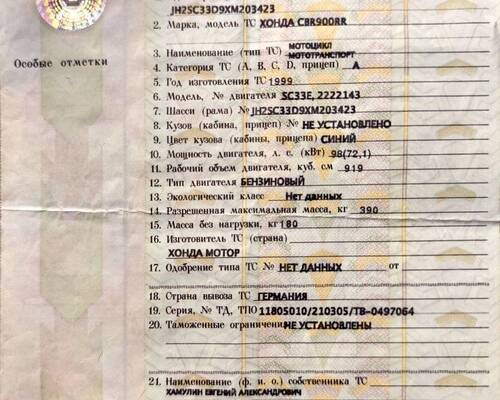 JH2SC33D9XM203423
2. Марка, модель ТС ХОНДА CBR900RR
МОТОЦИКЛ
3. Наименование (тип ТС) МОТОТРАНСПОРТ
Особые отметки
4. Категория ТС (A, B, C, D, прицеп) A
5. Год изготовления ТС 1999
6. Модель, № двигателя SC33E, 2222143
7. Шасси (рама) № JH2SC33D9XM203423
8. Кузов (кабина, прицеп) № НЕ УСТАНОВЛЕНО
9. Цвет кузова (кабины, прицепа) СИНИЙ
10. Мощность двигателя, л. с. (кВт) 98(72,1)
11. Рабочий объем двигателя, куб. см 919
12. Тип двигателя БЕНЗИНОВЫЙ
13. Экологический класс Нет данных
14. Разрешенная максимальная масса, кг 390
15. Масса без нагрузки, кг 180
16. Изготовитель ТС (страна)
ХОНДА МОТОР
17. Одобрение типа ТС № НЕТ ДАННЫХ от
18. Страна вывоза ТС ГЕРМАНИЯ
19. Серия, № ТД, ТПО 11805010/210305/ТВ-0497064
20. Таможенные ограничения НЕ УСТАНОВЛЕНЫ
21. Наименование (ф. и. о.) собственника ТС
ХАМУЛИН ЕВГЕНИЙ АЛЕКСАНДРОВИЧ